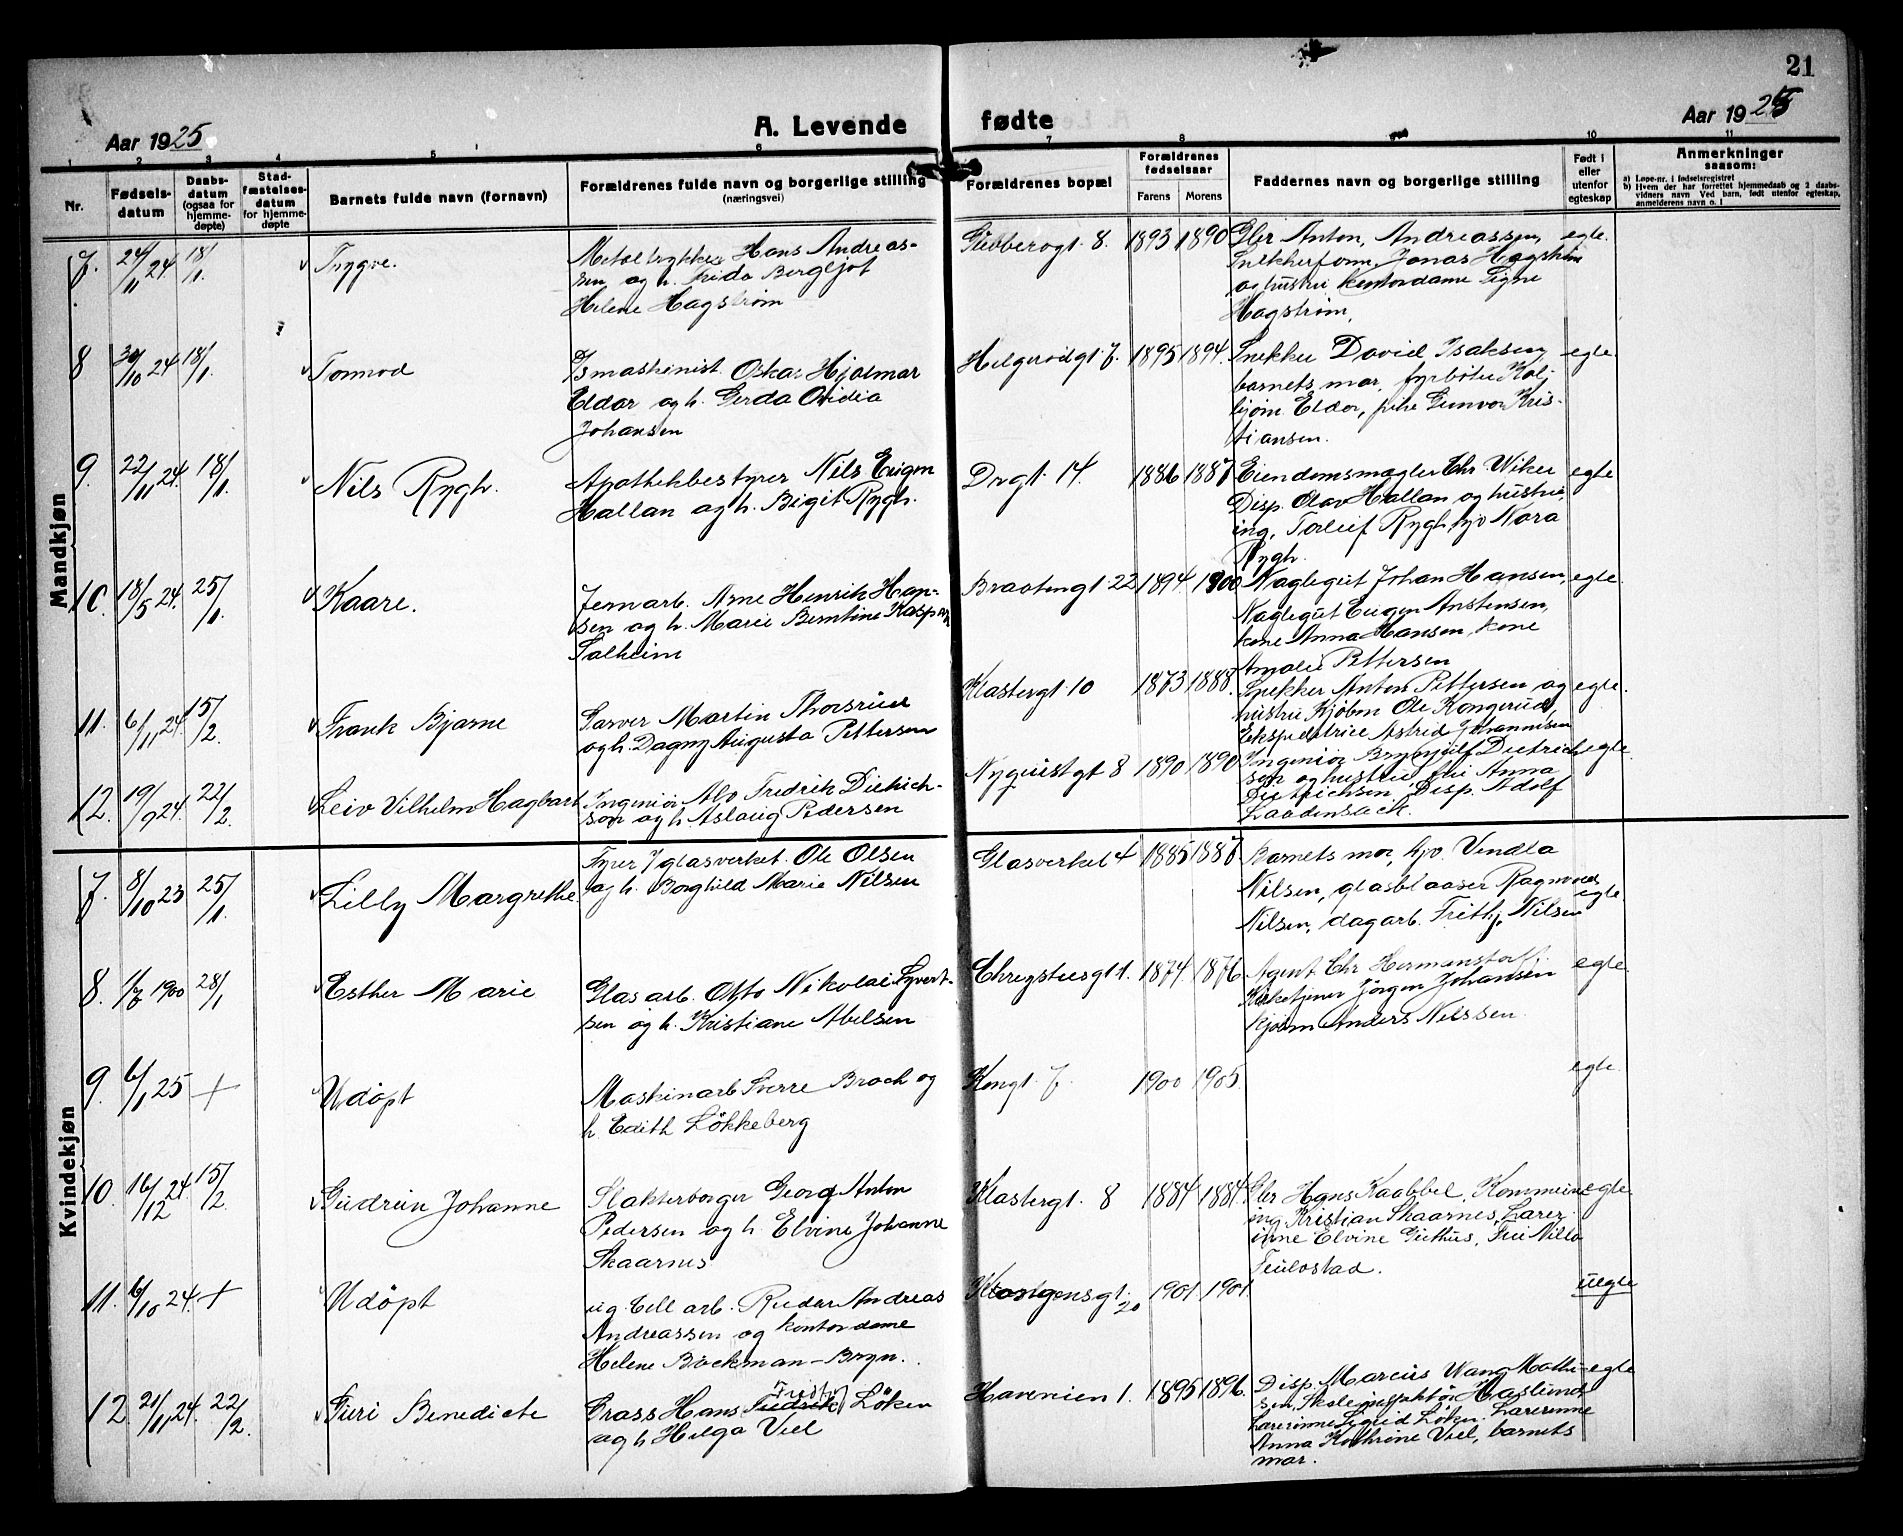 21
Aar 1925
A. Levende fødte
Aar 1925
1 2 3 4 5 6 7 8 10 11
Nr.
Fødselsdatum
Daabsdatum (ogsaa for hjemmedøpte)
Stadfæstelsesdatum for hjemmedøpte
Barnets fulde navn (fornavn)
Forældrenes fulde navn og borgerlige stilling (næringsvei)
Forældrenes bopæl
Forældrenes fødselsaar
Farens Morens
Faddernes navn og borgerlige stilling
Født i eller utenfor egteskap
Anmerkninger saasom:
a) Løpe-nr. i fødselsregistret
b) Hvem der har forrettet hjemmedaab og 2 daabsvidners navn Ved barn, født utenfor egteskap, anmelderens navn o. l
Mandkjøn
7. 24/11 24. 18/1. Trygve.
Metaltrykker Hans Andreas-
sen og h. Frida Bergljot
Helene Hagstrøm
Glubbegt. 8. 1893 1890
Glbr Anton Andreassen,
Jonas Hagstrøm
og hustru, kontordame Signe
Hagstrøm.
egte.
8 30/10 24. 18/1. Tormod
D/Smaskinist Oskar Hjalmar
Eldor og h. Gerda Ovidia
Johansen
Helgerødgt. 7. 1895 1894.
Snekker David Isaksen,
barnets mor, fyrbøter Kol-
bjørn Eldor, pike Gunvor Kris-
tiansen.
egte
9. 22/11 24. 18/1. Nils Rygh.
Apothekbestyrer Nils Eugen
Hallan og h. Birgit Rygh.
Drgt. 14. 1886 1887
Eiendomsmægler Chr Wiker
Disp. Olav Hallan og hustru,
ing. Torleif Rygh, hjv Nora
Rygh.
egte
10. 18/5 24. 25/1. Kaare.
Jernarb. Arne Henrik Han-
sen og h. Marie Berntine Kaspara
Solheim
Braatengt. 22 1894. 1900
Naglegut Johan Hansen,
Naglegut Eugen Anstensen,
kone Anna Hansen, kone
Amalie Pettersen
egte.
11. 6/11 24. 15/2. Frank Bjarne
Garver Martin Thorsrud
og h. Dagny Augusta Pettersen
Klostergt. 10 1873 1888.
Snekker Anton Pettersen og
hustru Kjøbm Ole Kongerud,
Ekspeditrice Astrid Johannesen
egte.
12. 19/9 24. 22/2. Leiv Vilhelm Hagbart
Ingeniør Alv Fredrik Dietrich-
son og h. Aslaug Pedersen
Nyquistgt 8 1890 1890
Ingeniør Brynjulf Dietrich-
son og hustru, fru Anna
Dietrichson, Disp. Adolf
egte
Kvindekjøn
7. 8/10 23 25/1. Lilly Margrethe
Fyrer v/glasverket Ole Olsen
og h. Borghild Marie Nilsen
Glasverket 4 1885 1887
Barnets mor, hjv. Vendla
Nilsen, glasblaaser Ragnvald
Nilsen, dagarb. Trithj. Nilsen
egte.
8. 1/7 1900 28/1 Esther Marie
Glasarb. Otto Nikolai Syvert-
sen og h. Kristiane Abelsen
Chrystiesgt 1. 1874. 1876.
Agent Chr Hermanstorff.
Kirketjener Jørgen Johansen
Kjøbm Anders Nilssen.
egte.
9. 6/1 25 + Udöpt
Maskinarb Sverre Broch og
h. Edith Løkkeberg
Kongt. 7. 1900 1905.
egte
10. 16/12 24. 15/2. Gudrun Johanne
Slakterborger Georg Anton
Pedersen og h. Elvine Johanne
Skaarnes
Klostergt. 8 1884 1884.
Glbr Hans Kaabbel, Kommune
ing Kristian Skaarnes, Lærer
inne Elvine Guthus, Fru Nilla
egte.
11. 6/10 24. + Udöpt
ug. Cell arb. Reidar Andreas
Andreassen og kontordame
Helene Böckman-Bryn.
20 1901 1901
uegte
12 21/11 24. 22/2. Guri Benedicte
Gross Hans Fredrik Löken
og h Helga Viel
Havnveien 1. 1895 1896.
Disp. Marcus Wang Mathi-
sen, Skoleinspektør Haslund
Lærerinne Sigrid Løken. Lærerinne
Anna Kathrine Viel, barnets
mor.
egte